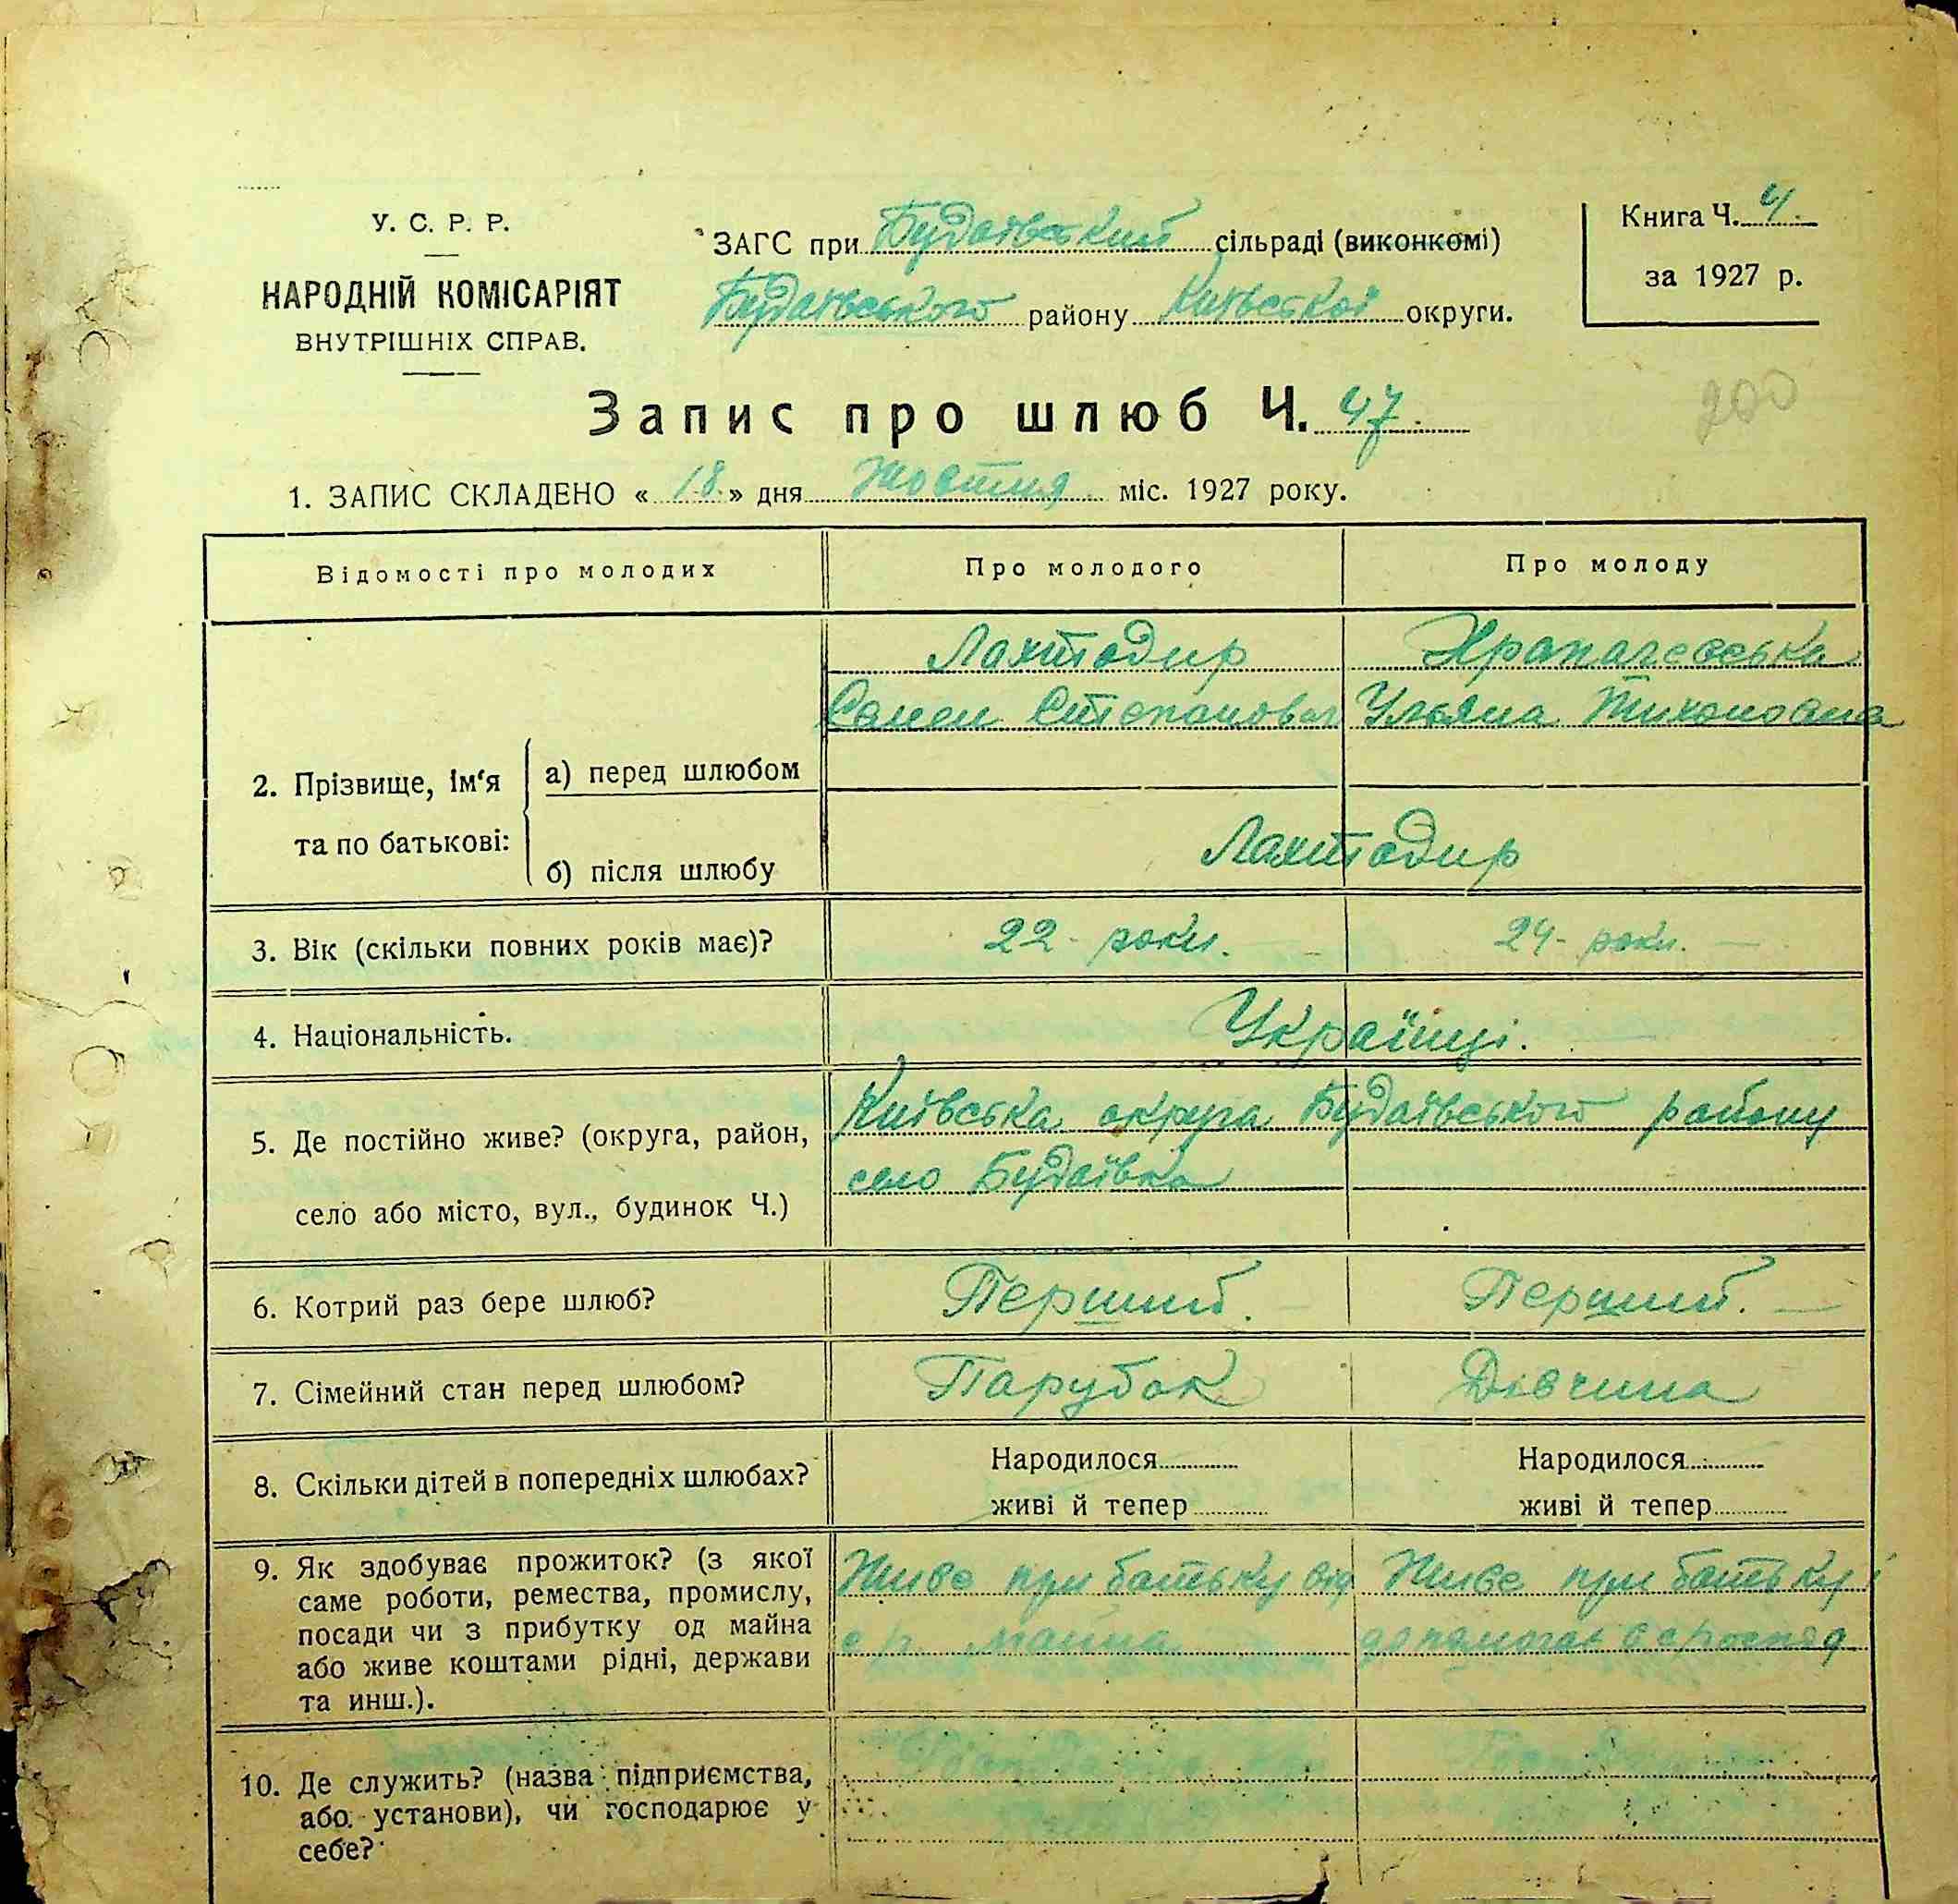 У. С. Р. Р.
НАРОДНІЙ КОМІСАРІЯТ
ВНУТРІШНІХ СПРАВ.
ЗАГС при Будаївський сільраді (виконкомі)
Будаївського району Київської округи.
Книга Ч. 4
за 1927 р.
Запис про шлюб Ч. 47
200
1. ЗАПИС СКЛАДЕНО « 18 » дня Жовтня міс. 1927 року.
Відомості про молодих
Про молодого
Про молоду
2. Прізвище, ім'я та по батькові:
а) перед шлюбом
Лахтадир
Семен Степанович
Уляна Тихоновна
б) після шлюбу
Лахтадир
3. Вік (скільки повних років має)?
22 - роки.
24 - роки. —
4. Національність.
Українці.
5. Де постійно живе? (округа, район,
село або місто, вул., будинок Ч.)
Київська округа Будаївського району
село Будаївка
6. Котрий раз бере шлюб?
Перший.
Перший. —
7. Сімейний стан перед шлюбом?
Парубок
Дівчина
8. Скільки дітей в попередніх шлюбах?
Народилося
живі й тепер
Народилося
живі й тепер
9. Як здобуває прожиток? (з якої
саме роботи, ремества, промислу,
посади чи з прибутку од майна
або живе коштами рідні, держави
та инш.).
Живе при батьку від
с/г. майна
Живе при батьку і
допомогає в с/господ
10. Де служить? (назва підприємства,
або установи), чи господарює у
себе?